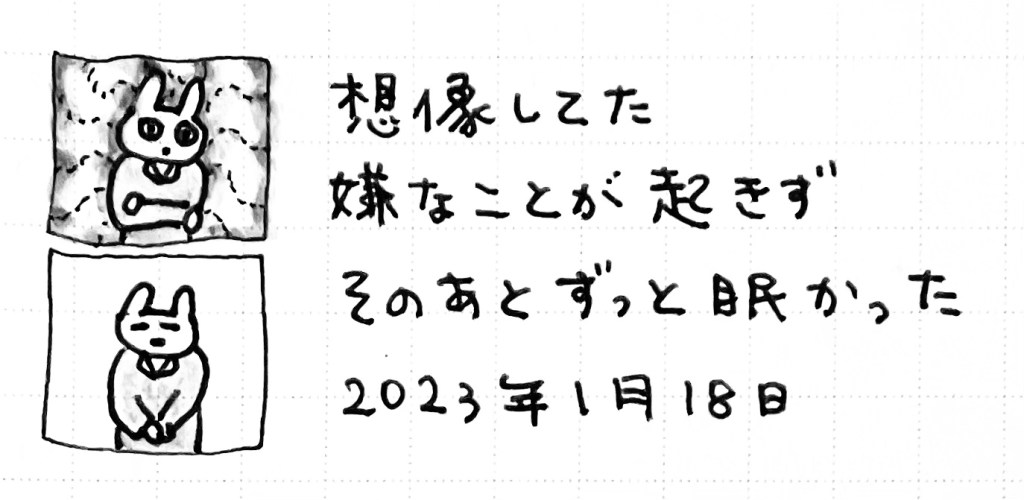 想像してた
嫌なことが起きず
そのあとずっと眠かった
2023年1月18日